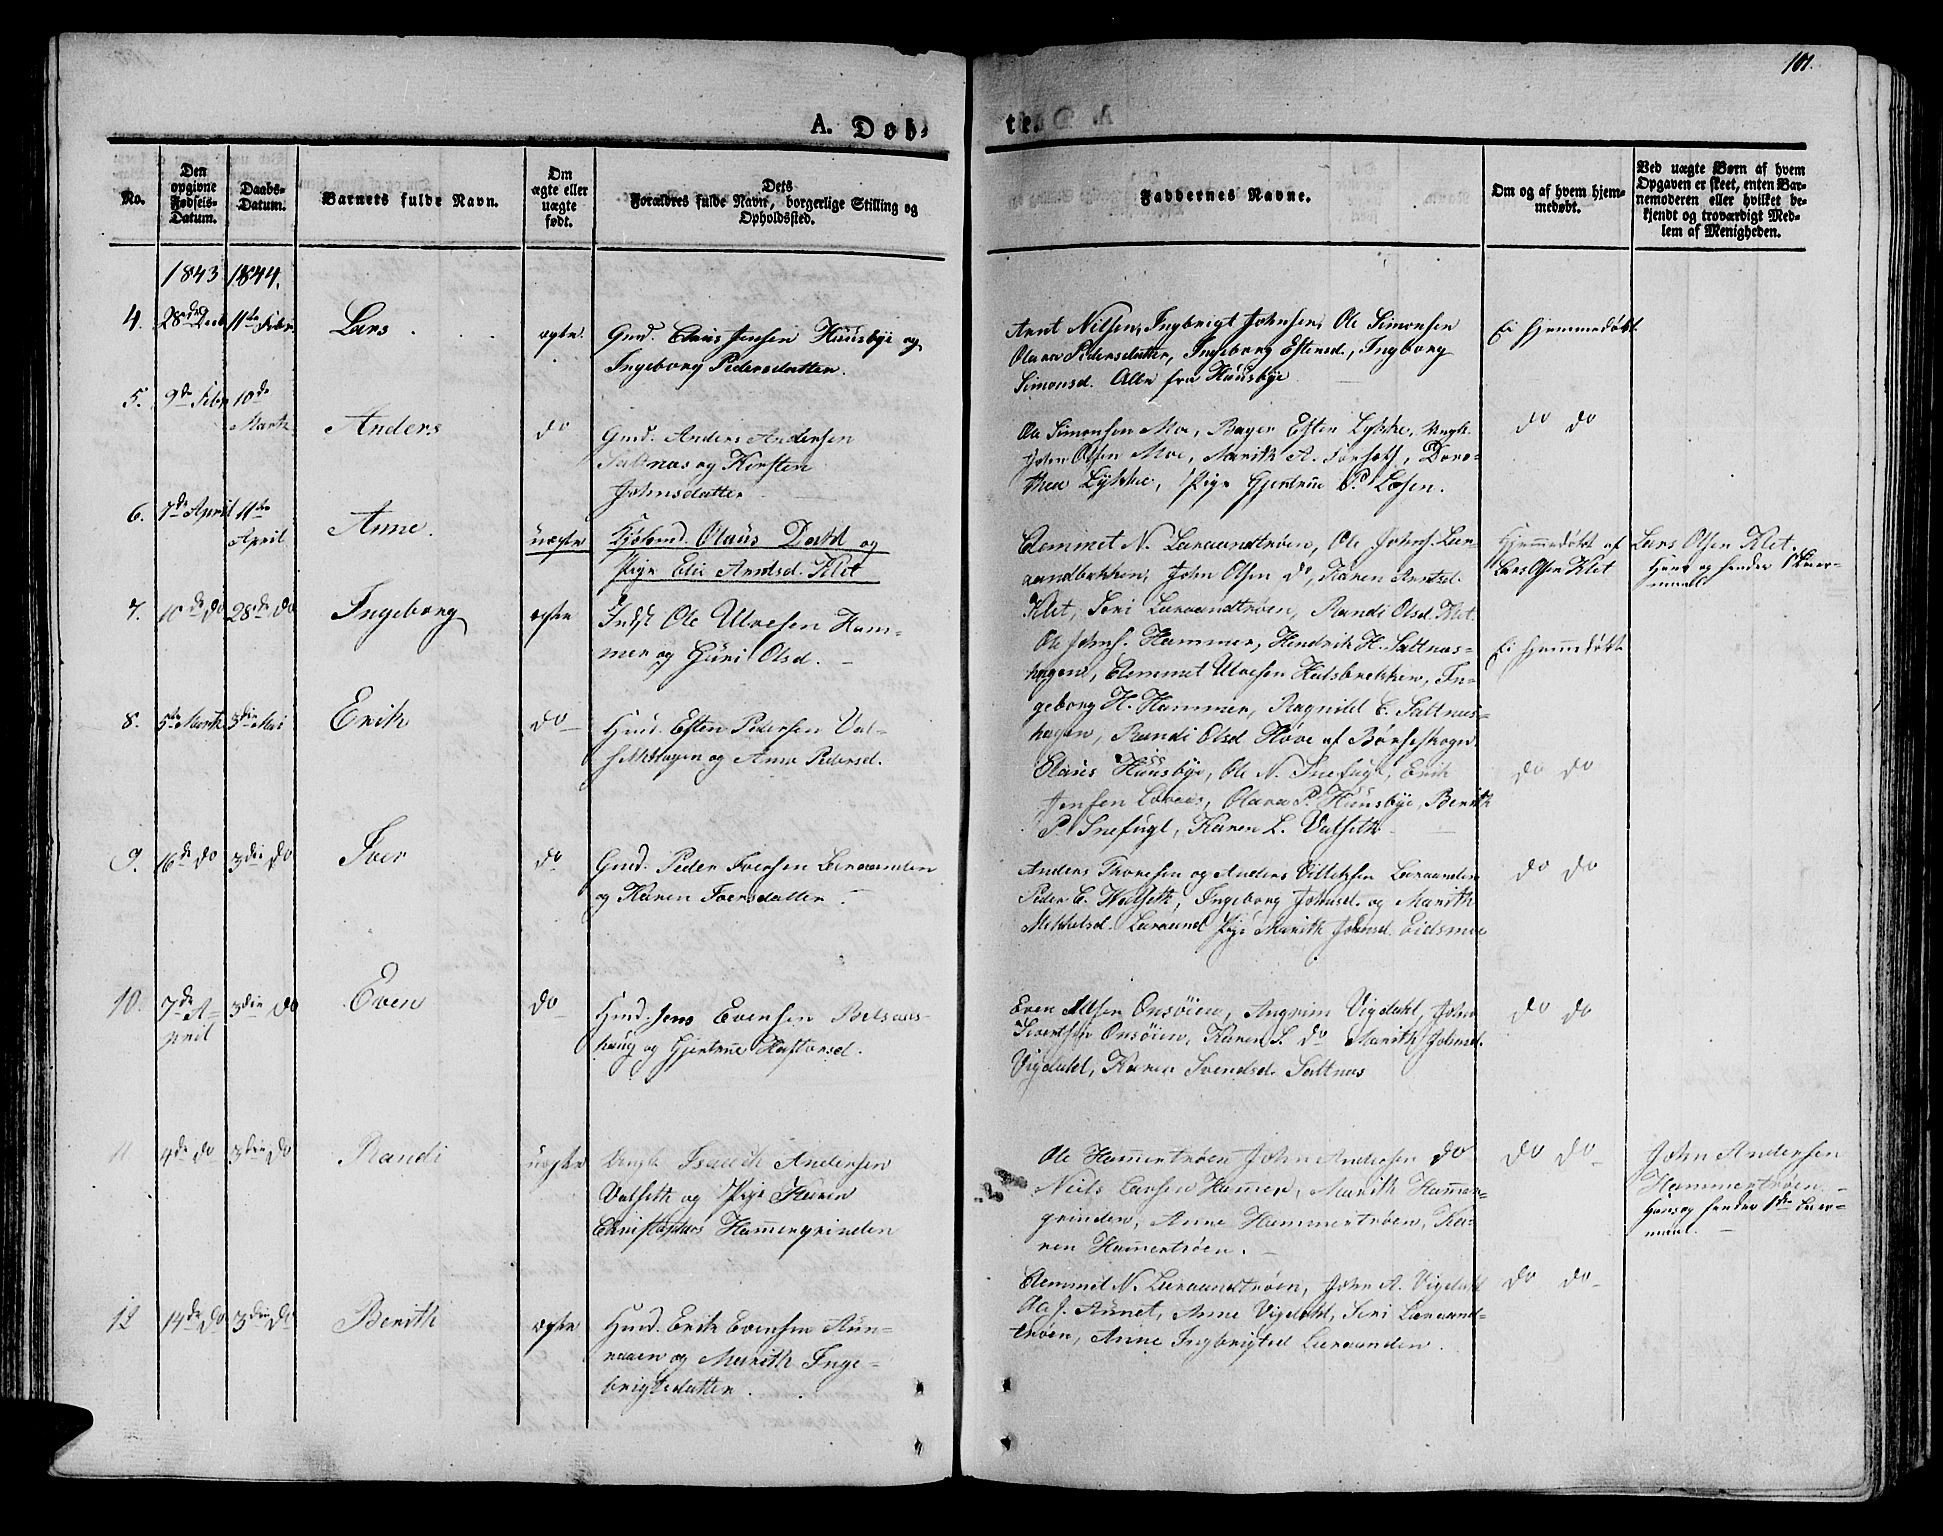 101.
A. Døb-
te.
No.
Den opgivne Fødsels-Datum.
Daabs-Datum.
Barnets fulde Navn.
Om ægte eller uægte født.
Dets Forældres fulde Navn, borgerlige Stilling og Opholdssted.
Faddernes Navne.
Om og af hvem hjem-medøbt.
Ved uægte Børn af hvem Opgaven er skeet, enten Bar-nemoderen eller hvilket be-kjendt og troværdigt Med-lem af Menigheden.
1843 1844.
4. 28de Decb 11te Febr. Lars ægte
Gmd. Claus Jensen Huusbye og
Ingeborg Pedersdatter.
Arnt Nilsen, Ingbrigt Johnsen, Ole Simonsen
Olava Pedersdatter, Ingeborg Estensd., Ingborg
Simonsd. Alle fra Huusbye
Ei Hjemmedøbt
5. 9de Febr 10de Marts Anders do
Gmd. Anders Andersen
Saltnæs og Kirsten
Johnsdatter
Simonsen Moe, Esten Lykke, Ungk.
John Olsen Moe, Marith A. Doro-
thea Lykke, Pige Gjertrue P.
do do
6. 7de April 11te April Anne. uægte
Olaus David og
Pige Eli Arntsd. Klet
Clemmet N. Laraandtrøen, Ole Johns. Lar-
aandbakken, John Olsen do, Karen Arntsd.
Klet, Siri Laraandtrøen, Randi Olsd. Klet.
Hjemmedøbt af
Lars Olsen Klet
Lars Olsen Klet.
Hans og hendes 1ste Leier-
maal
7. 10de do 28de do Ingeborg ægte
Indst Ole Ulvesen Ham-
mer og Guri Olsd.
Ole Johns. Hammer, Hendrik H. Saltnæs-
hagen, Clemmet Ulvesen In-
geborg H. Hammer, Ragnild E. Saltnæs-
hagen, Randi Olsd Hove af Børseskogn
Ei Hjemmedøbt
8. 5te Marts 3die Mai Erik do
Hmd. Esten Pedersen Val-
sethhagen og Ane Pedersd.
Claus Huusbye, Ole N. Snefugl, Erik
Jensen Olava P. Huusbye, Berith
P. Snefugl, Karen L. Valseth
do do
9. 16de do 3die do Iver do
Gmd. Peder Iversen Laraanden
og Karen Iversdatter
Anders Thoresen og Anders Laraanden
Peder E. Ingeborg Johnsd. og Marith
Mikkelsd. Laraand Pige Marith Johnsd. Eidsmoe
do do
10. 7de April 3die do Even do
Hmd. Jens Evensen Belsaas-
haug og Gjertrue
Even Onsøien, Angrim Vigdahl, John
Sivertsen Onsøien, Karen S. do Marith Johnsd.
Vigdahl, Karen Svendsd. Saltnæs
do do
11 4de do 3die do Randi uægte
Ungk. Andersen
Valseth og Pige Karen
Christophers Hammergrinden
Ole Hammertrøen John Andersen do
Niels Larsen Hammer, Marith Hammer-
grinden, Anne Hammertrøen, Ka-
ren Hammertrøen.
do do
John Andersen
Hammertrøen
Hans og hendes 1ste Leier-
maal.
12 14de do 3die do Berith ægte
Hmd. Erik Evensen Aun-
og Marith Inge-
brigtsdatter.
Clemmet N. Laraandtrøen, John A. Vigdahl
Aunet, Anne Vigdahl, Siri Laraand-
trøen, Anne Ingbrigtsd Laraanden.
do do